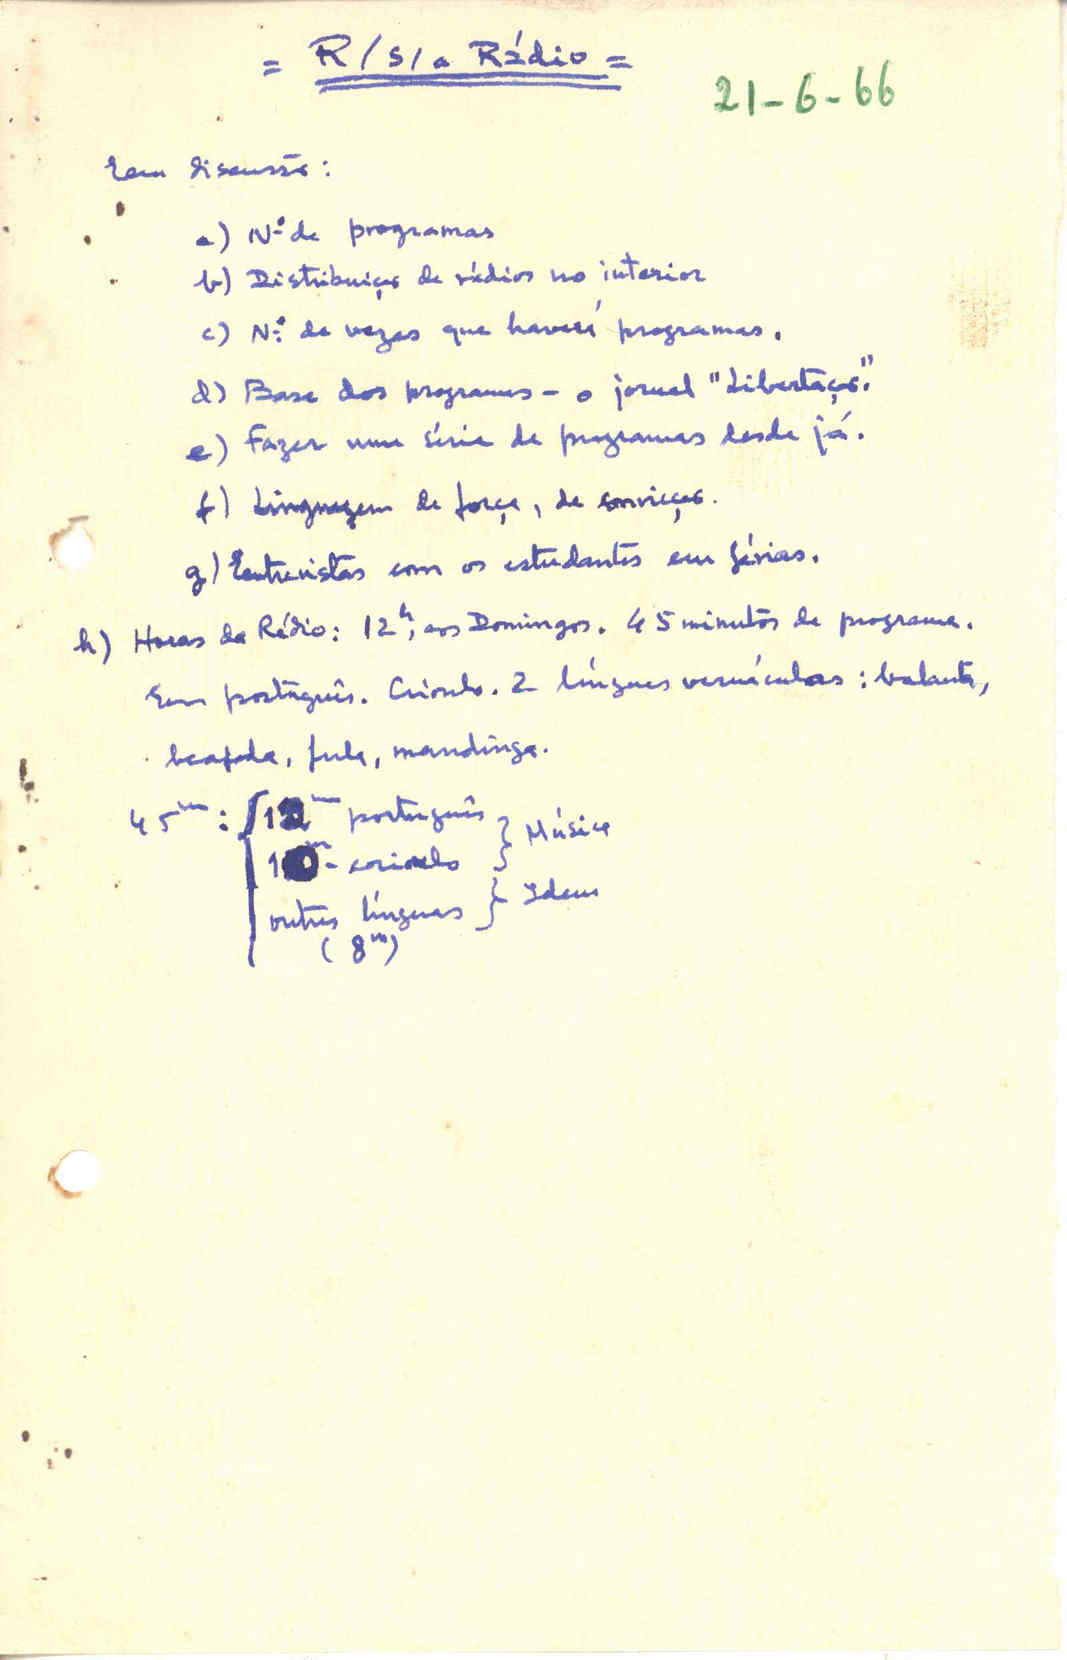 = R/s/a Rádio =
21-6-66
Em discussão:
a) Nº de programas
b) Distribuição de rádios no interior
c) Nº de vezes que haverá programas.
d) Base dos programas - o jornal "Libertação".
e) Fazer uma série de programas desde já.
f) Linguagem de força, de convicção.
g) Entrevistas com os estudantes em férias.
h) Horas da Rádio: 12h, aos Domingos. 45 minutos de programa.
Em português. Crioulo. 2 línguas vernáculas: balanta,
beafada, fula, mandinga.
45m: português } Música
crioulo
outras línguas } Idem
(8m)